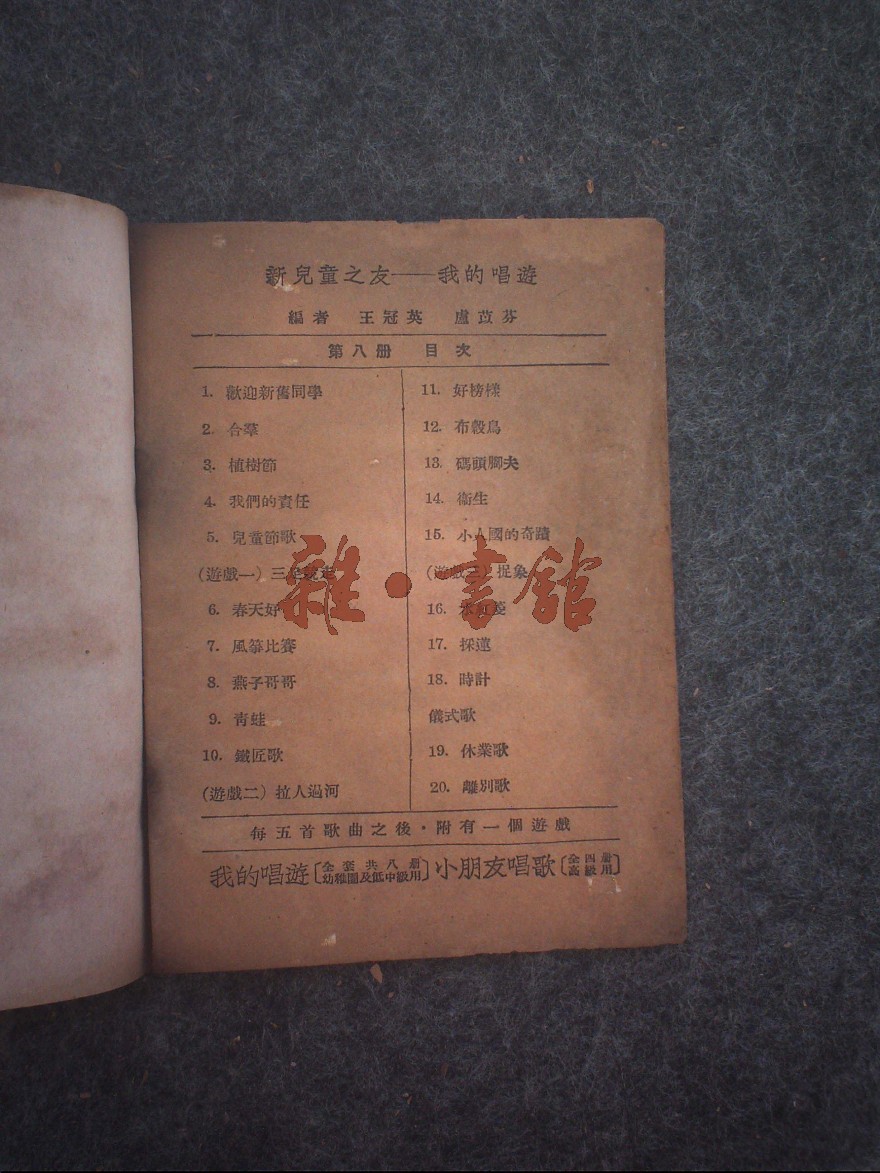 新兒童之友——我的唱遊
編者 王冠英 盧苡芬
第八册 目次
1. 歡迎新舊同學
2. 合羣
3. 植樹節
4. 我們的責任
5. 兒童節歌
(遊戲一) 三足競走
6. 春天好
7. 風箏比賽
8. 燕子哥哥
9. 青蛙
10. 鐵匠歌
(遊戲二) 拉人過河
11. 好榜樣
12. 布穀鳥
13. 碼頭腳夫
14. 衞生
15. 小人國的奇蹟
(遊戲三) 捉象
16. 水紅菱
17. 採蓮
18. 時計
儀式歌
19. 休業歌
20. 離別歌
每五首歌曲之後·附有一個遊戲
我的唱遊〔全套共八册 幼稚園及低中級用〕小朋友唱歌〔全四册 高級用〕
雜·書館